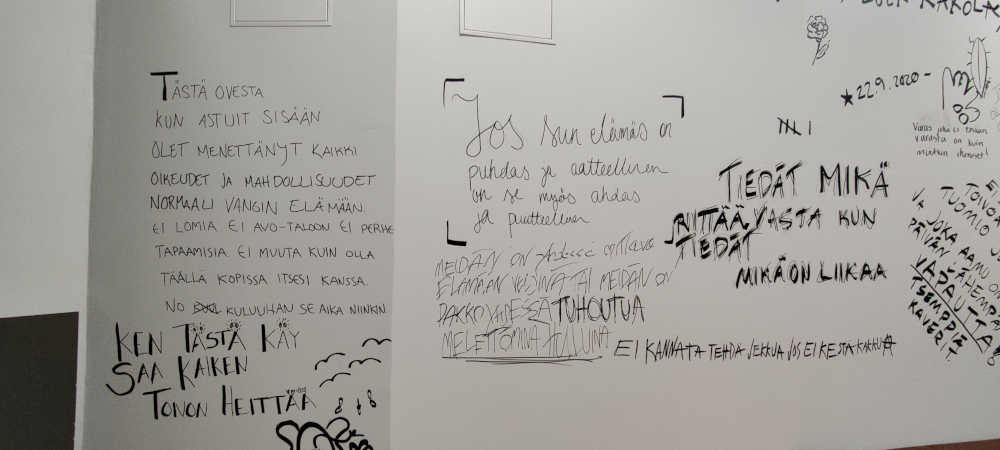 TÄSTÄ OVESTA
KUN ASTUIT SISÄÄN
OLET MENETTÄNYT KAIKKI
OIKEUDET JA MAHDOLLISUUDET
NORMAALI VANGIN ELÄMÄÄN.
EI LOMIA. EI AVO-TALOON EI PERHE
TAPAAMISIA. EI MUUTA KUIN OLLA
TÄÄLLÄ KOPISSA ITSESI KANSSA.
NO KULUUHAN SE AIKA NIINKIN
KEN TÄSTÄ KÄY
SAA KAIKEN
TOIVON HEITTÄÄ
Jos sun elämäs on
puhdas ja aatteellinen
on se myös ahdas
ja puutteellinen
MEIDÄN ON
ELÄMÄÄN VELJINÄ TAI MEIDÄN ON
PAKKO YHDESSÄ TUHOUTUA
MIELETTÖMINÄ HULLUINA
KAKOLA
★ 22.9.2020 -
Varas joka ei
varasta on kuin
muutkin ihmiset!
TIEDÄT MIKÄ
RIITTÄÄ VASTA KUN
TIEDÄT
MIKÄ ON LIIKAA
EI KANNATA TEHDÄ JEKKUA JOS EI KESTÄ KAKKUA
TOIVOA
TUOMIO
VA JOKA AAMU ON
PÄIVÄN LÄHEMPÄNÄ
VAPAUTTA!
TSEMPPIÄ
KAVERIT.